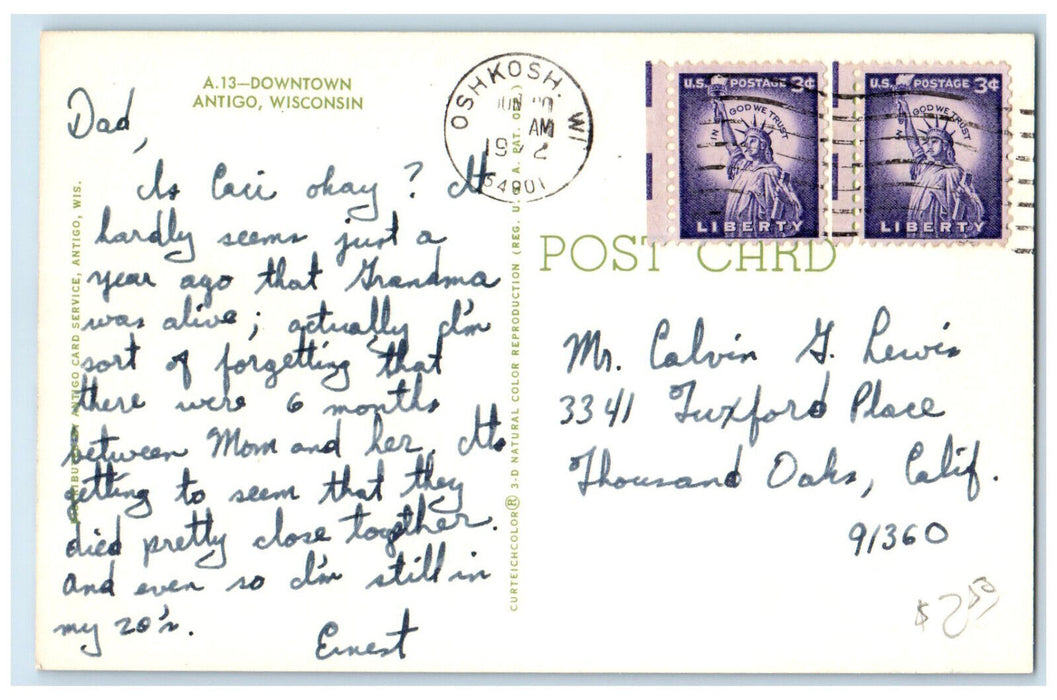 A.13—DOWNTOWN
ANTIGO, WISCONSIN
Dad,
Is Ceci okay? It
hardly seems just a
year ago that Grandma
was alive; actually I'm
sort of forgetting that
there were 6 months
between Mom and her. It's
getting to seem that they
died pretty close together.
And even so I'm still in
my 20's.
Ernest
ANTIGO CARD SERVICE, ANTIGO, WIS.
CURTEICHCOLOR® 3-D NATURAL COLOR REPRODUCTION (REG. U.S.A. PAT. OFF.)
OSHKOSH, WI
JUN
AM
54901
U.S. POSTAGE 3¢
IN GOD WE TRUST
LIBERTY
U.S. POSTAGE 3¢
IN GOD WE TRUST
LIBERTY
POST CARD
Mr. Calvin G. Lewis
3341 Tuxford Place
Thousand Oaks, Calif.
91360
$2.50